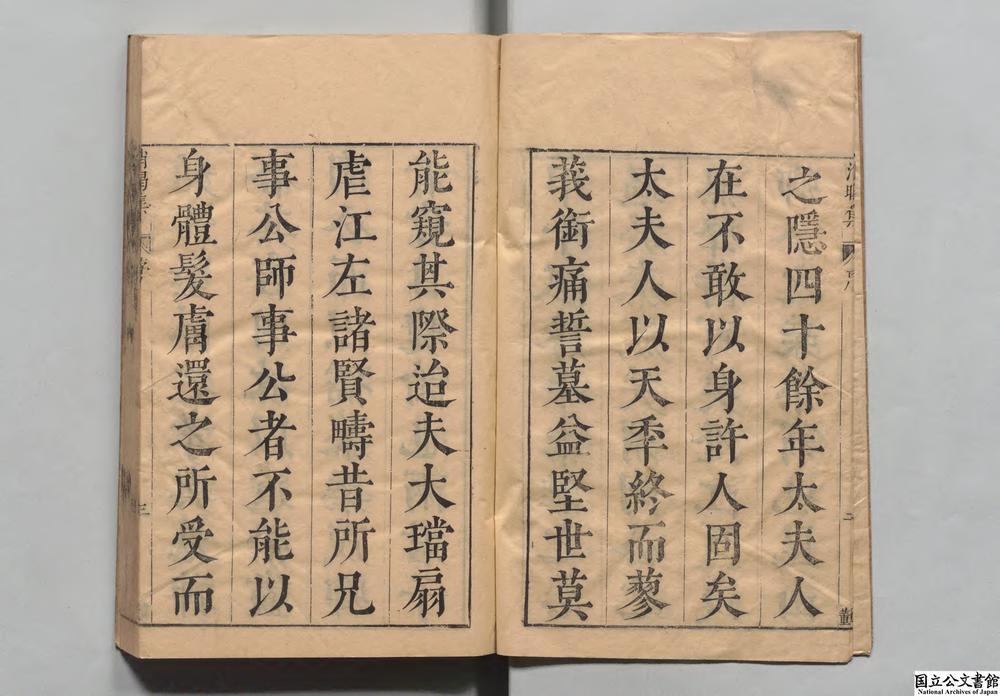 之隱四十餘年太夫人
在不敢以身許人固矣
太夫人以天秊終而蓼
莪銜痛誓墓益堅世莫
能窺其際迨夫大璫扇
虐江左諸賢疇昔所兄
事公師事公者不能以
身體髮膚還之所受而
国立公文書館
National Archives of Japan